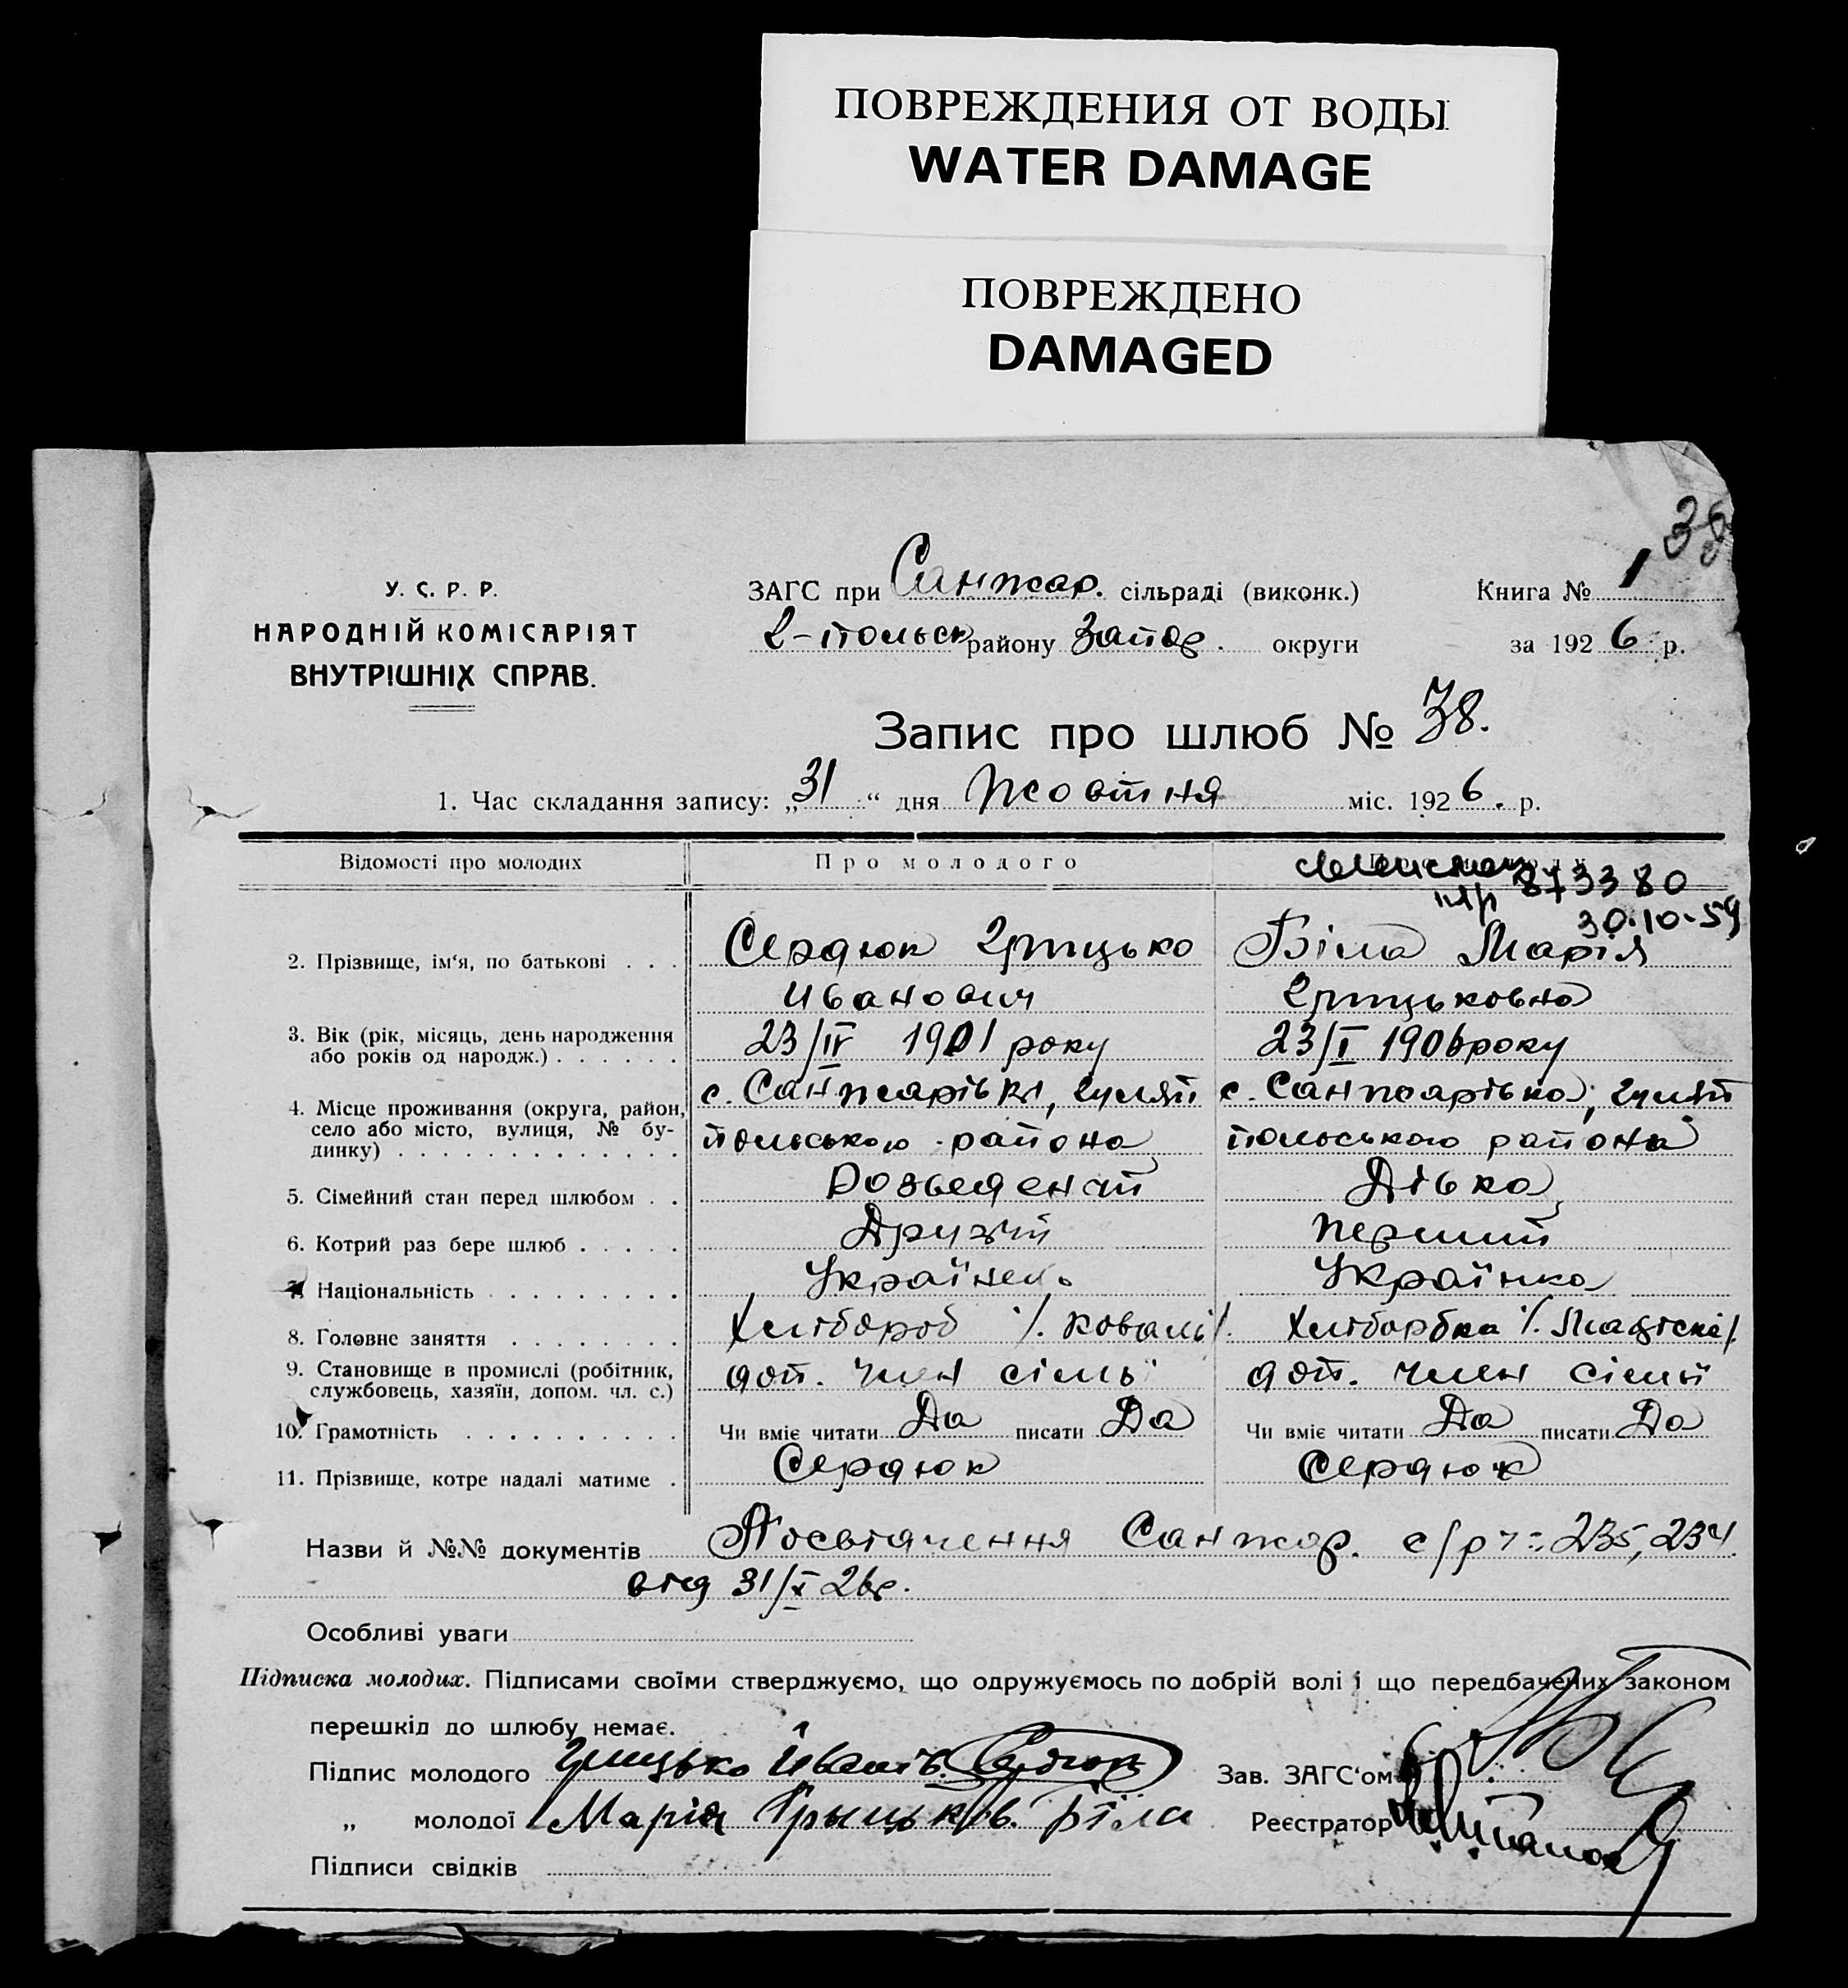 ПОВРЕЖДЕНИЯ ОТ ВОДЫ
WATER DAMAGE
ПОВРЕЖДЕНО
DAMAGED
38
У. С. Р. Р.
НАРОДНІЙ КОМІСАРІЯТ
ВНУТРІШНІХ СПРАВ.
ЗАГС при Санжар. сільраді (виконк.) Книга № 1
Г-польск району Запор. округи за 1926 р.
Запис про шлюб № 38.
1. Час складання запису: „31“ дня Жовтня міс. 1926. р.
Відомості про молодих Про молодого
873380
30.10-59
2. Прізвище, ім‘я, по батькові . . . Сердюк Грицько Біла Марія
Иванович Грицьковна
3. Вік (рік, місяць, день народження 23/IV 1901 року 23/I 1906 року
або років од народж.) . . . . . .
4. Місце проживання (округа, район, с. Санжарівка, Гуляй с. Санжарівка, Гуляй
село або місто, вулиця, № бу- польського района польського района
динку) . . . . . . . . . . . . .
5. Сімейний стан перед шлюбом . . Розведений Дівка
6. Котрий раз бере шлюб . . . . . Другий Перший
7. Національність . . . . . . . . . Українець Українка
8. Головне заняття . . . . . . . . Хлібороб /. коваль/. Хлібор​бка
9. Становище в промислі (робітник, доп. член сімьї доп. член сімьї
службовець, хазяїн, допом. чл. с.)
10. Грамотність . . . . . . . . . . Чи вміє читати Да писати Да Чи вміє читати Да писати Да
11. Прізвище, котре надалі матиме . Сердюк Сердюк
Назви й №№ документів Посвідчення Санжар. с/р 235, 234.
від 31/X 26р.
Особливі уваги
Підписка молодих. Підписами своїми стверджуємо, що одружуємось по добрій волі і що передбачених законом
перешкід до шлюбу немає.
Підпис молодого Грицько Іванів. Сердюк Зав. ЗАГС‘ом
„ молодої Марія Грыцьков. Біла Реєстратор
Підписи свідків